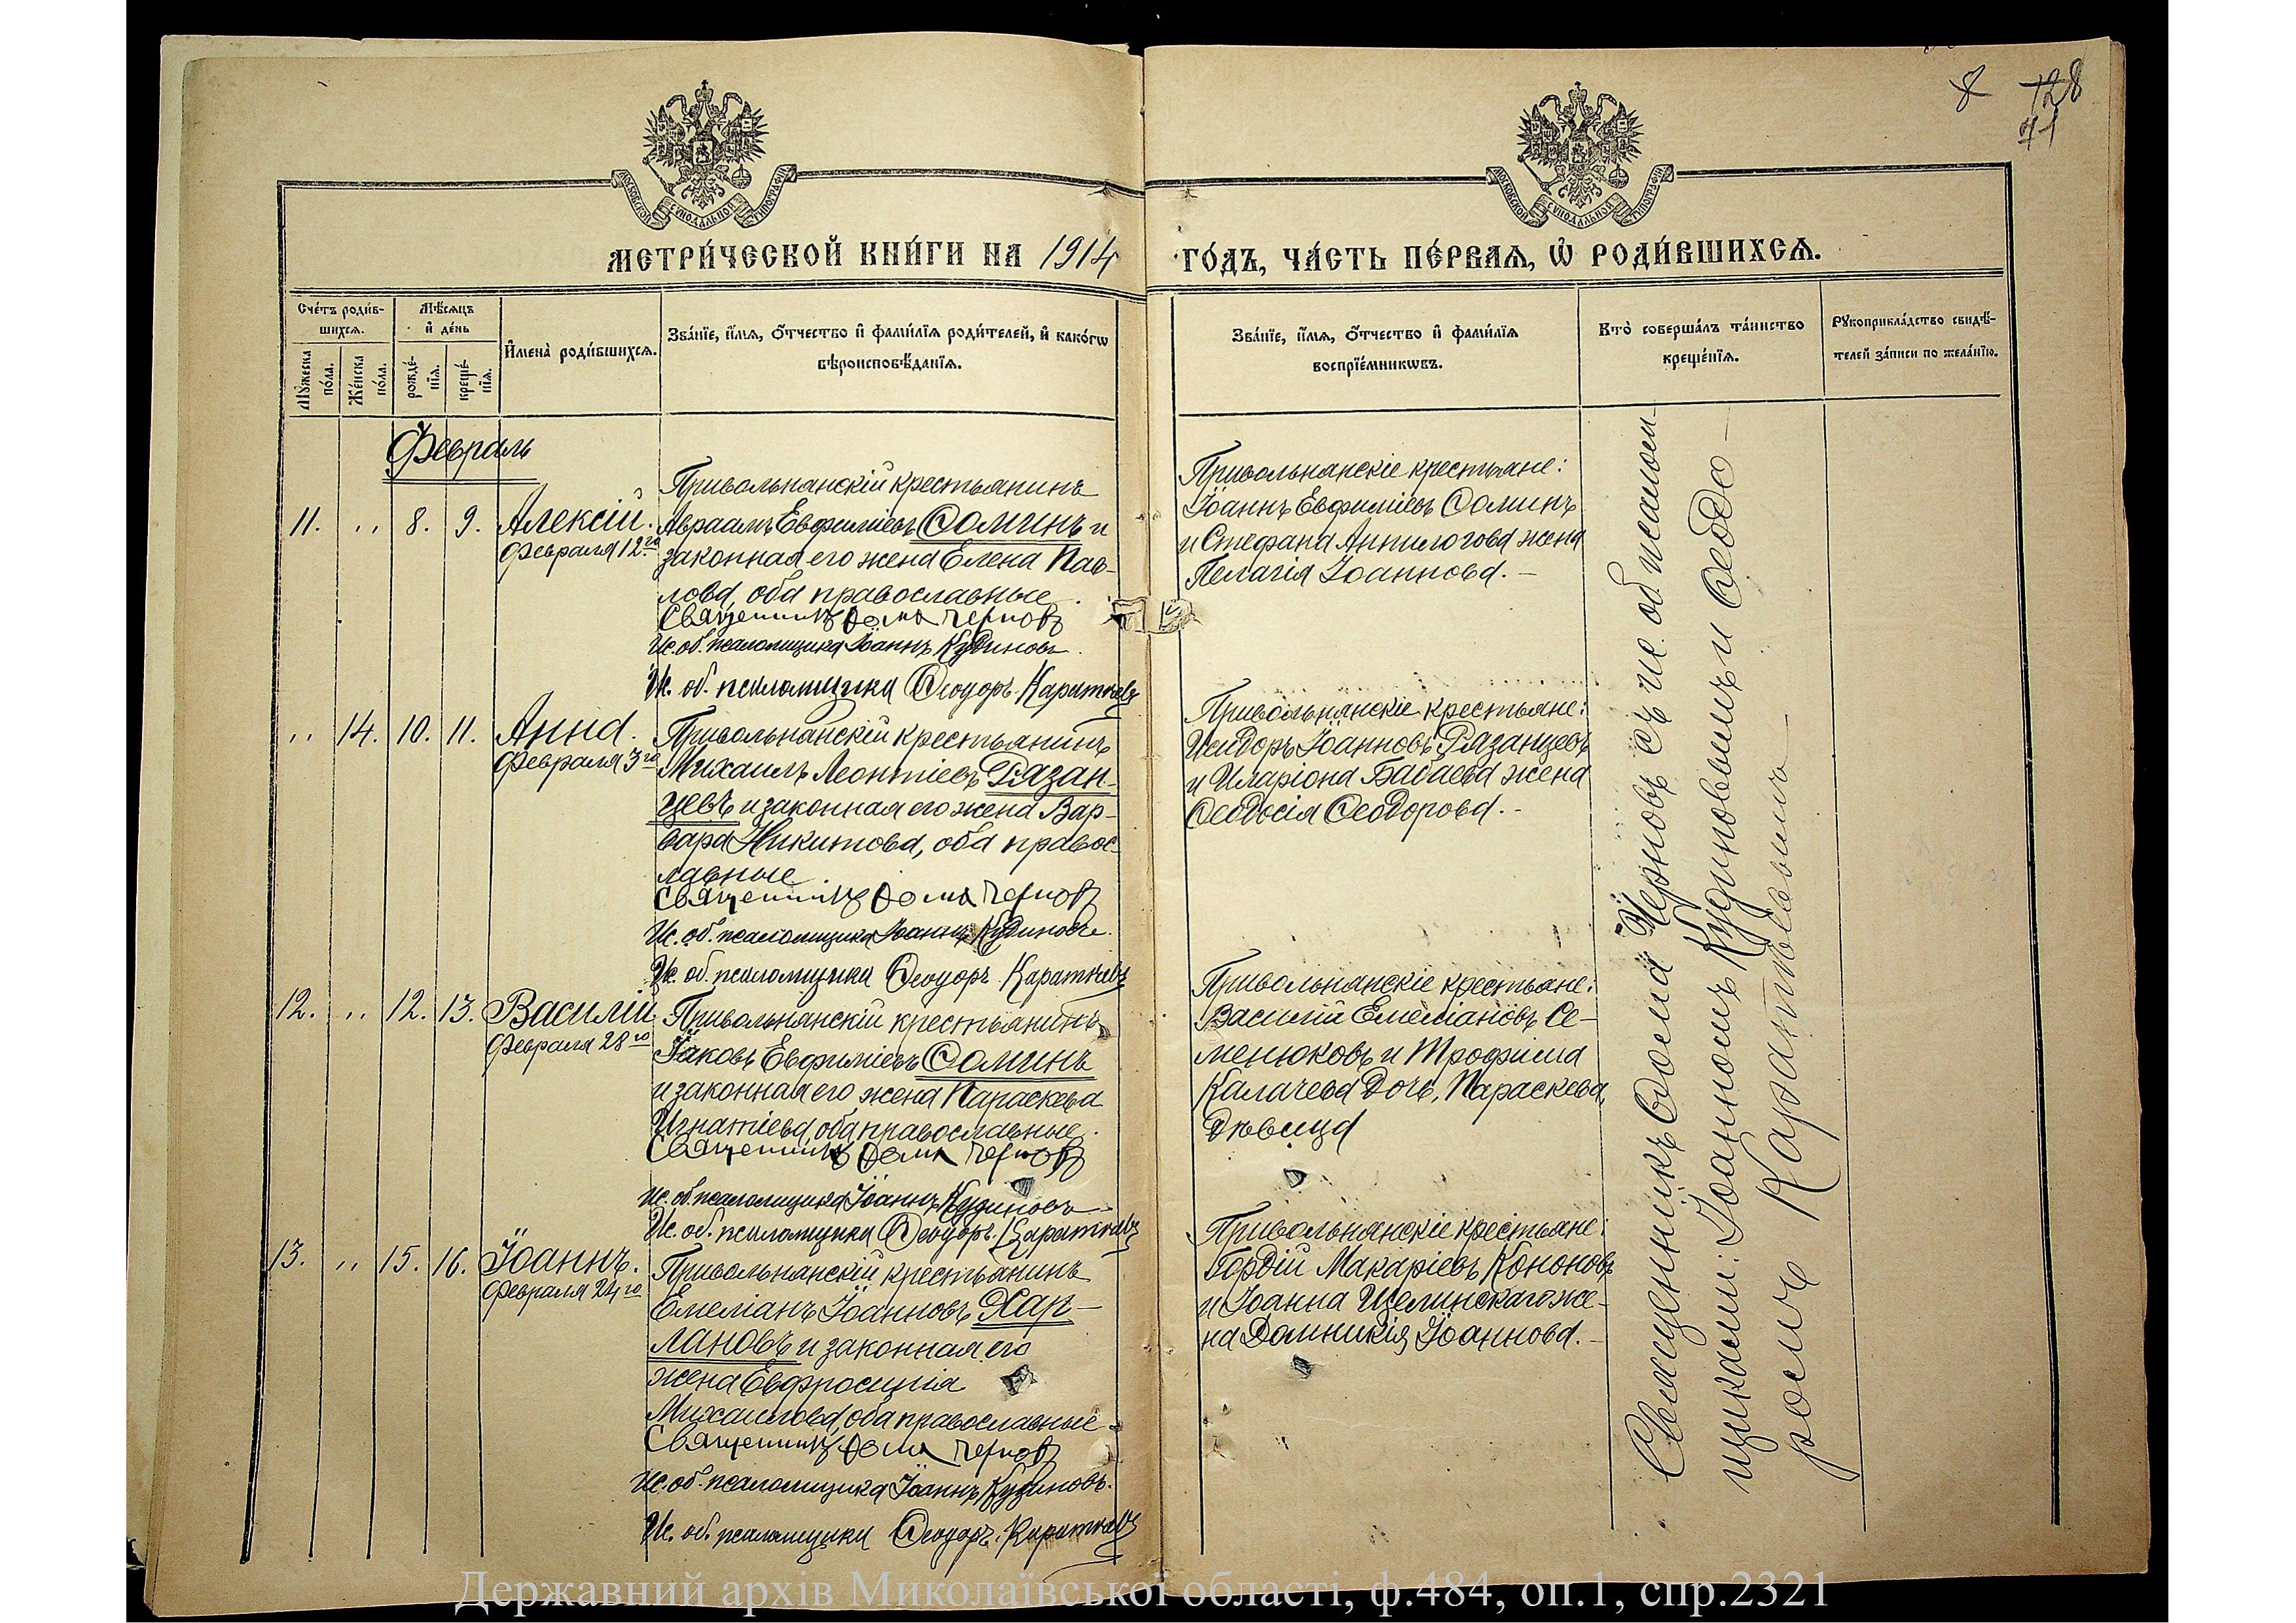 8 128
71
МОСКОВСКОЙ СѴНОДАЛЬНОЙ ТИПОГРАФІИ
МОСКОВСКОЙ СѴНОДАЛЬНОЙ ТИПОГРАФІИ
МЕТРИ́ЧЕСКОЙ КНИ́ГИ НА 1914
ГО́ДЪ, ЧА́СТЬ ПЕ́РВАѦ, Ѽ РОДИ́ВШИХСѦ.
Сче́тъ роди́в-
шихсѧ.
Мѣ́сѧцъ
и҆ де́нь
Мꙋ́жеска
по́ла.
Же́нска
по́ла.
рожде́-
нїѧ.
креще́-
нїѧ.
И҆мена̀ роди́вшихсѧ.
Зва́нїе, и҆́мѧ, ѻ҆́тчество и҆ фами́лїѧ роди́телей, и҆ како́гѡ
вѣроисповѣ́данїѧ.
Зва́нїе, и҆́мѧ, ѻ҆́тчество и҆ фами́лїѧ
воспрїе́мникѡвъ.
Кто̀ соверша́лъ та́инство
креще́нїѧ.
Рꙋкоприкла́дство свидѣ́-
телей за́писи по жела́нїю.
Февраль
11. ,, 8. 9. Алексій.
Февраля 12го
Привольнанскій крестьянинъ
Авраамъ Евфиміевъ Соминъ и
законная его жена Елена Пав-
лова, оба православные.
Священникъ Ѳома Черновъ
Ис. об. псаломщика Іоаннъ Кудиновъ.
Ис. об. псаломщика Ѳеодоръ Каратѣевъ
Привольнанскіе крестьяне:
Іоаннъ Евфиміевъ Соминъ
и Стефана Анпилогова жена
Пелагія Іоаннова.-
,, 14. 10. 11. Анна.
Февраля 3го
Привольнанскій крестьянинъ
Михаилъ Леонтіевъ Рязан-
цевъ и законная его жена Вар-
вара Никитова, оба правос-
лавные
Священникъ Ѳома Черновъ
Ис. об. псаломщика Іоаннъ Кудиновъ.
Ис. об. псаломщика Ѳеодоръ Каратѣевъ
Привольнянскіе крестьяне:
Исидоръ Іоанновъ Рязанцевъ
и Иларіона Бабаева жена
Ѳеодосія Ѳеодорова.-
12. ,, 12. 13. Василій
Февраля 28го
Привольнянскій крестьянинъ
Іаковъ Евфиміевъ Соминъ
и законная его жена Параскева
Игнатіева, оба православные.
Священникъ Ѳома Черновъ
Ис. об. псаломщика Іоаннъ Кудиновъ
Ис. об. псаломщика Ѳеодоръ Каратѣевъ
Привольнанскіе крестьяне:
Василій Емеліановъ Се-
менюковъ и Трофима
Калачева дочь, Параскева,
дѣвица
13. ,, 15. 16. Іоаннъ.
Февраля 24го
Привольнанскій крестьянинъ
Емеліанъ Іоанновъ Хар-
лановъ и законная его
жена Евфросинія
Михаилова, оба православные
Священникъ Ѳома Черновъ
Ис. об. псаломщика Іоаннъ Кудиновъ.
Ис. об. псаломщика Ѳеодоръ Каратѣевъ
Привольнанскіе крестьяне:
Гордій Макаріевъ Кононовъ
и Іоанна Щелинскаго же-
на Домникія Іоаннова.-
Священникъ Ѳома Черновъ съ ис. об. псалом-
щиками: Іоанномъ Кудиновымъ и Ѳеодо-
ромъ Каратѣевымъ
Державний архів Миколаївської області, ф.484, оп.1, спр.2321